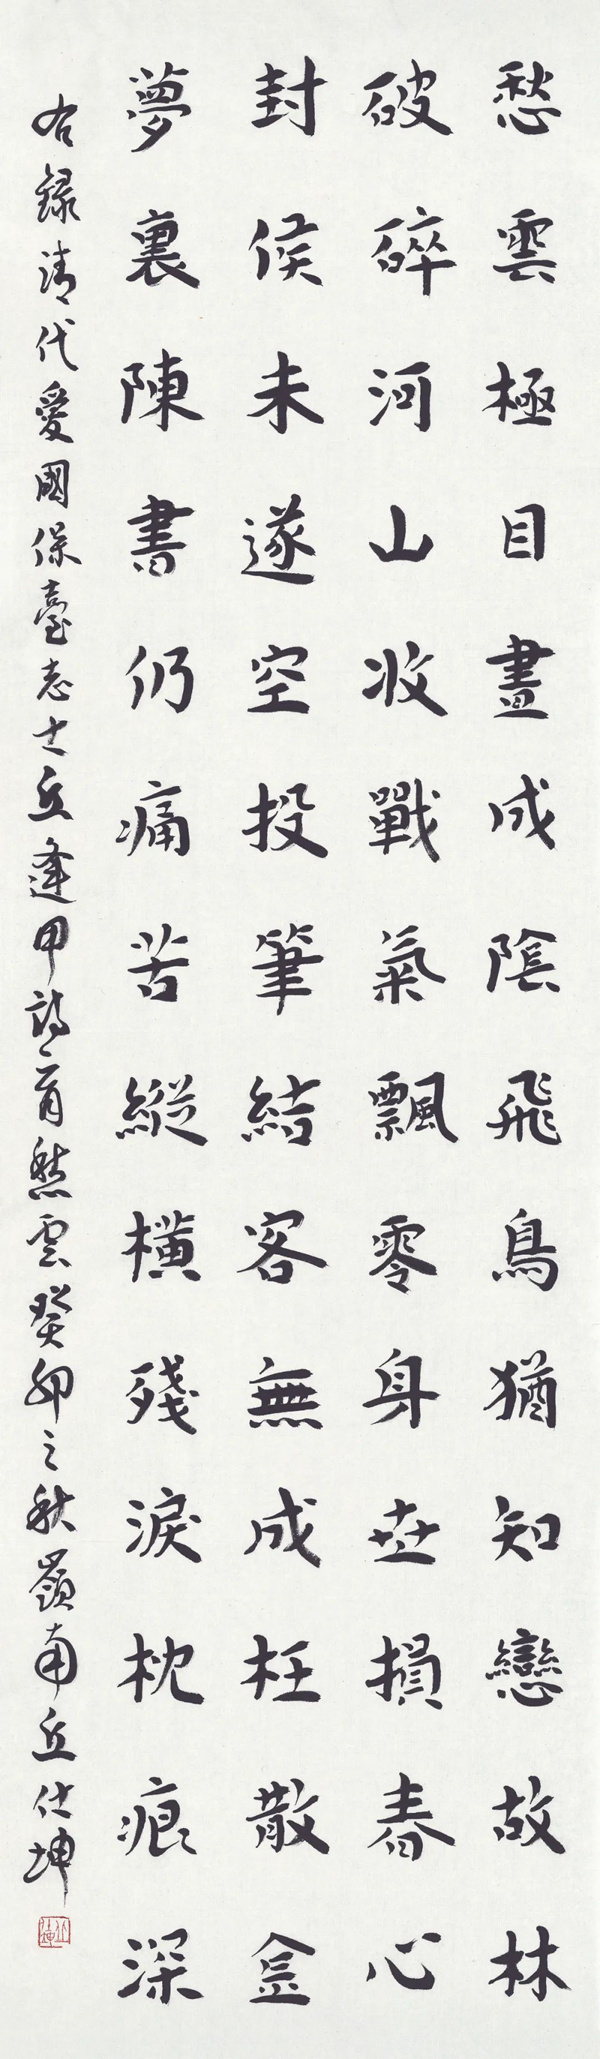 愁雲極目晝成陰飛鳥猶知戀故林
破碎河山收戰氣飄零身世損春心
封侯未遂空投筆結客無成枉散金
夢裏陳書仍痛苦縱橫殘淚枕痕深
右錄清代愛國保臺志士丘逢甲詩一首愁雲癸卯之秋嶺南丘仕坤